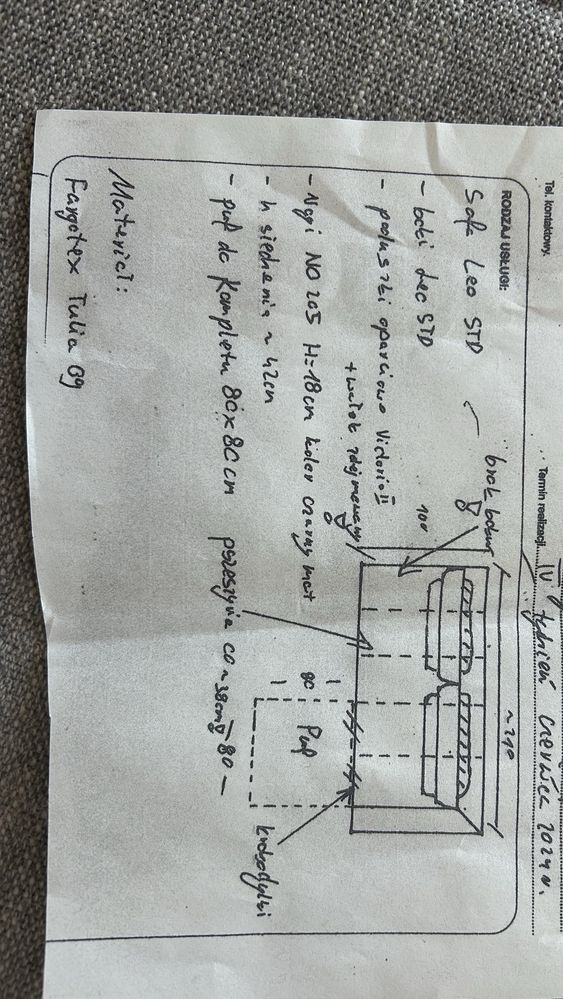 Tel. kontaktowy:
Termin realizacji: IV tydzień czerwiec 2024 r.
RODZAJ USŁUGI:
Sofa Leo STD
- boki Leo STD
- poduszki oparciowe Victoria II
+ wałek zdejmowany
- Nogi NO 205 H=18cm kolor czarny mat
- h siedzenia ~ 42cm
- puf do kompletu 80x80cm
przeszycia co ~38cm
brak boku
~210
100
80
Puf
80
krokodylki
Materiał:
Fargotex Tulia 09